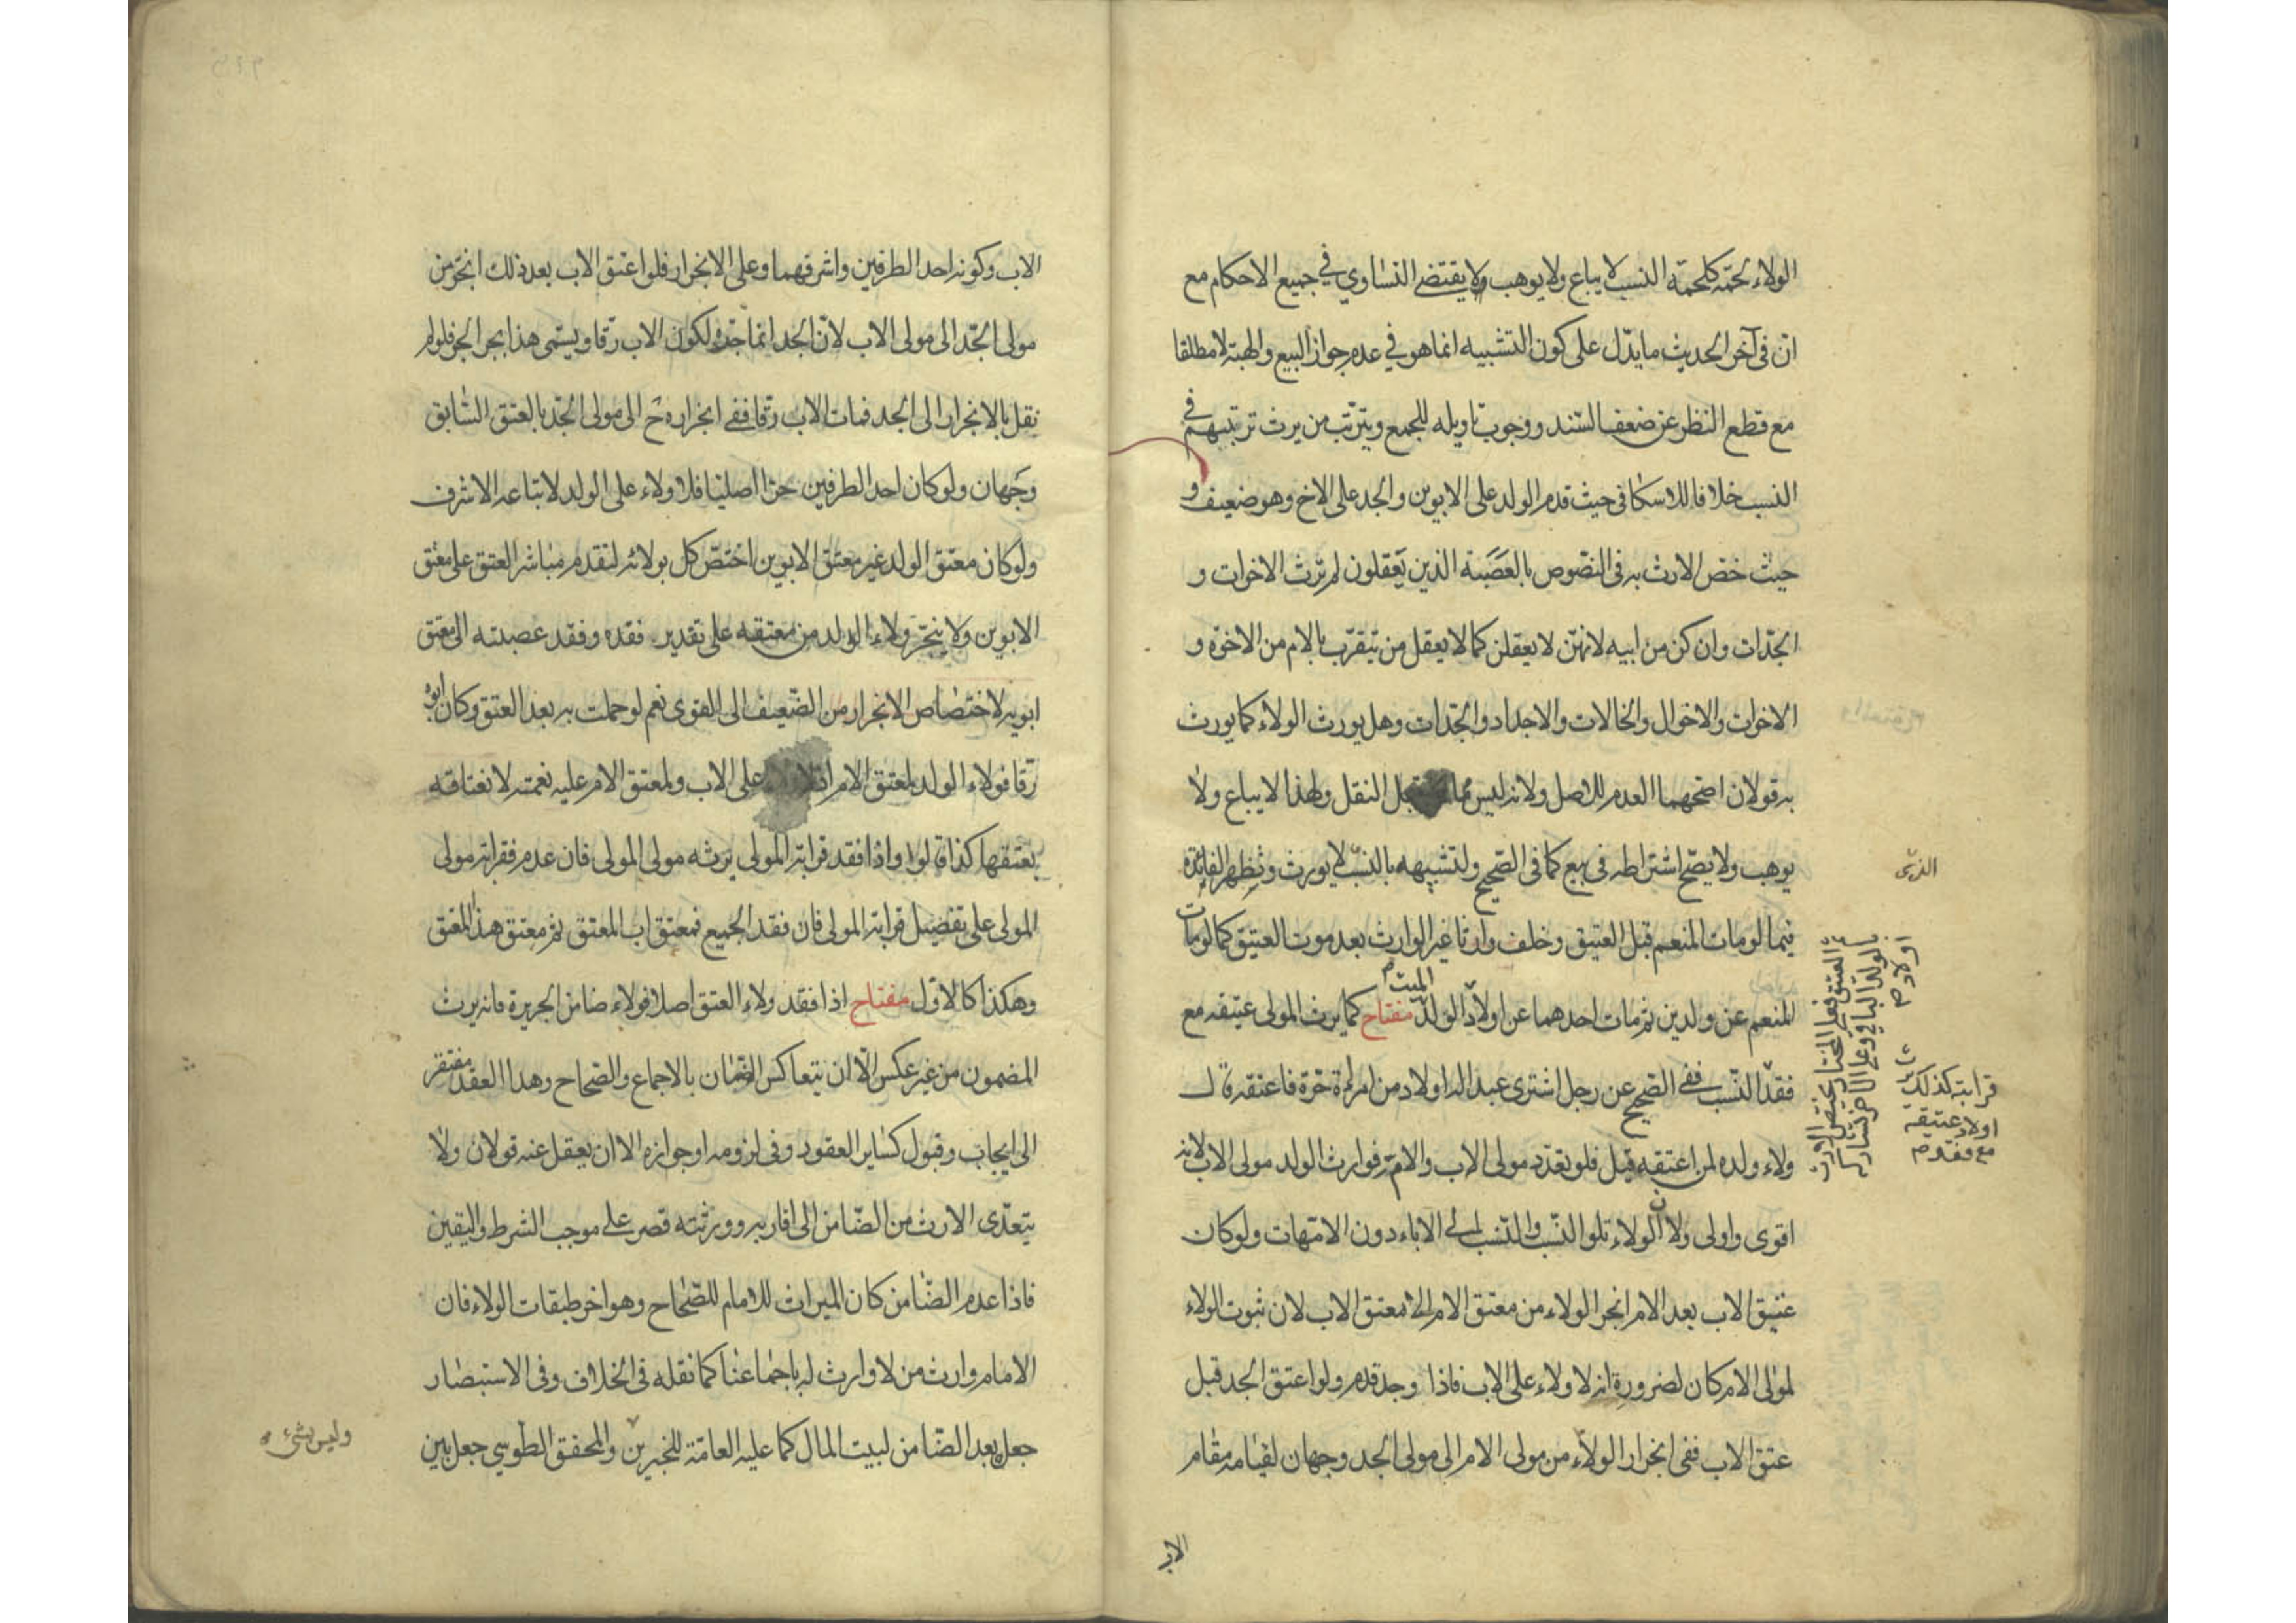 الولاء لحمة كلحمة النسب لا يباع ولا يوهب ولا يقتضي التساوي في جميع الاحكام مع
ان في آخر الحديث ما يدل على كون التشبيه انما هو في عدم جواز البيع والهبة لا مطلقا
مع قطع النظر عن ضعف السند ووجوب تاويله للجمع ويترتب من يرث ترتيبهم في
النسب خلافا للاسكافي حيث قدم الولد على الابوين والجد على الاخ وهو ضعيف و
حيث خص الارث به في النصوص بالعصبة الذين يعقلون لم ترث الاخوات و
الجدات وان كن من ابيه لانهن لا يعقلن كما لا يعقل من يتقرب بالام من الاخوة و
الاخوات والاخوال والخالات والاجداد والجدات وهل يورث الولاء كما يورث
به قولان اصحهما العدم للاصل ولانه ليس مما يقبل النقل ولهذا لا يباع ولا
يوهب ولا يصح اشتراطه في بيع كما في الصحيح ولتشبيهه بالنسب لا يورث وتظهر الفائدة
الذى
فيما لو مات المنعم قبل العتيق وخلف وارثا غير الوارث بعد موت العتيق كما لو مات
المنعم عن ولدين ثم مات احدهما عن اولاد الولد مفتاح كما يرث المولى عتيقه مع
الميت
ثم العتيق فعلى المختار يختص الارث
بالولد الباقي وعلى الاخر تشاركه
اولاد
قرابته كذلك يرث
اولاد عتيقه
مع فقدهم
فقد النسب ففي الصحيح عن رجل اشترى عبدا له اولاد من امراة حرة فاعتقه قال
ولاء ولده لمن اعتقه قيل فلو تعدد مولى الاب والام فوارث الولد مولى الاب لانه
اقوى واولى ولان الولاء تلو النسب والنسب الى الاباء دون الامهات ولو كان
عتيق الاب بعد الام انجر الولاء من معتق الام الى معتق الاب لان ثبوت الولاء
لمولى الام كان لضرورة انه لا ولاء على الاب فاذا وجد قدم ولو اعتق الجد قبل
عتق الاب ففي انجرار الولاء من مولى الام الى مولى الجد وجهان لقيامه مقام
الاب
الاب وكونه احد الطرفين واشرفهما وعلى الانجرار فلو اعتق الاب بعد ذلك انجر من
مولى الجد الى مولى الاب لان الجد انما جره لكون الاب رقا ويسمى هذا بجر الجر فلو لم
نقل بالانجرار الى الجد فمات الاب رقا ففي انجراره ح الى مولى الجد بالعتق السابق
وجهان ولو كان احد الطرفين حرا اصليا فلا ولاء على الولد لاتباعه الاشرف
ولو كان معتق الولد غير معتق الابوين اختص كل بولائه لتقدم مباشر العتق على معتق
الابوين ولا ينجر ولاء الولد من معتقه على تقدير فقده وفقد عصبته الى معتق
ابويه لاختصاص الانجرار من الضعيف الى القوى نعم لو حملت به بعد العتق وكان ابوه
رقا فولاء الولد لمعتق الام اذ لا ولاء على الاب ولمعتق الام عليه نعمة لانعتاقه
بعتقها كذا قالوا واذا فقد قرابة المولى يرثه مولى المولى فان عدم فقرابة مولى
المولى على تفضيل قرابة المولى فان فقد الجميع فمعتق اب المعتق ثم معتق هذا المعتق
وهكذا كالاول مفتاح اذا فقد ولاء العتق اصلا فولاء ضامن الجريرة فانه يرث
المضمون من غير عكس الا ان يتعاكس الضمان بالاجماع والصحاح وهذا العقد مفتقر
الى ايجاب وقبول كساير العقود وفي لزومه او جوازه الا ان يعقل عنه قولان ولا
يتعدى الارث من الضامن الى اقاربه وورثته قصر على موجب الشرط واليقين
فاذا عدم الضامن كان الميراث للامام للصحاح وهو اخر طبقات الولاء فان
الامام وارث من لا وارث له باجماعنا كما نقله في الخلاف وفي الاستبصار
جعل بعد الضامن لبيت المال كما عليه العامة للخبرين والمحقق الطوسي جعل بين
وليس بشيء